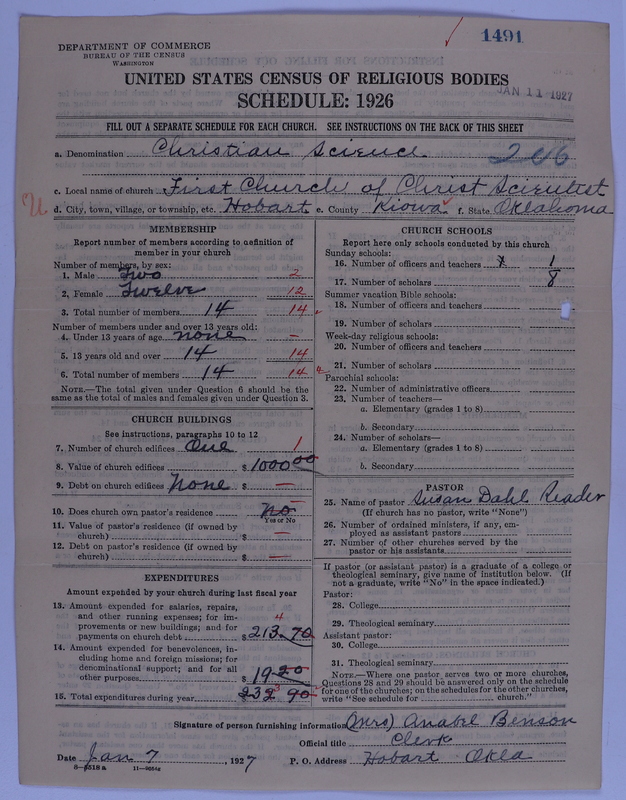 1491
DEPARTMENT OF COMMERCE
BUREAU OF THE CENSUS
WASHINGTON
UNITED STATES CENSUS OF RELIGIOUS BODIES
JAN 11 1927
SCHEDULE: 1926
FILL OUT A SEPARATE SCHEDULE FOR EACH CHURCH. SEE INSTRUCTIONS ON THE BACK OF THIS SHEET
a. Denomination Christian Science 206
c. Local name of church First Church of Christ Scientist
d. City, town, village, or township, etc. Hobart e. County Kiowa f. State Oklahoma
MEMBERSHIP
Report number of members according to definition of
member in your church
Number of members, by sex:
1. Male Two 2
2. Female Twelve 12
3. Total number of members 14 14
Number of members under and over 13 years old:
4. Under 13 years of age none –
5. 13 years old and over 14 14
6. Total number of members 14 14
NOTE.—The total given under Question 6 should be the
same as the total of males and females given under Question 3.
CHURCH BUILDINGS
See instructions, paragraphs 10 to 12
7. Number of church edifices One 1
8. Value of church edifices $ 1000 00
9. Debt on church edifices None $ –
10. Does church own pastor's residence no
Yes or No
11. Value of pastor's residence (if owned by
church) $ –
12. Debt on pastor's residence (if owned by
church) $ –
EXPENDITURES
Amount expended by your church during last fiscal year
13. Amount expended for salaries, repairs,
and other running expenses; for im-
provements or new buildings; and for 4
payments on church debt $ 213.70
14. Amount expended for benevolences, in-
cluding home and foreign missions; for
denominational support; and for all
other purposes $ 19 20
15. Total expenditures during year 232 90
CHURCH SCHOOLS
Report here only schools conducted by this church
Sunday schools:
16. Number of officers and teachers 1
17. Number of scholars 8
Summer vacation Bible schools:
18. Number of officers and teachers
19. Number of scholars
Week-day religious schools:
20. Number of officers and teachers
21. Number of scholars
Parochial schools:
22. Number of administrative officers
23. Number of teachers—
a. Elementary (grades 1 to 8)
b. Secondary
24. Number of scholars—
a. Elementary (grades 1 to 8)
b. Secondary
PASTOR
25. Name of pastor Susan Dahl Reader
(If church has no pastor, write "None")
26. Number of ordained ministers, if any, em-
ployed as assistant pastors
27. Number of other churches served by the
pastor or his assistants
If pastor (or assistant pastor) is a graduate of a college or
theological seminary, give name of institution below. (If
not a graduate, write "No" in the space indicated.)
Pastor:
28. College
29. Theological seminary
Assistant pastor:
30. College
31. Theological seminary
NOTE.—Where one pastor serves two or more churches,
Questions 28 and 29 should be answered only on the schedule
for one of the churches; on the schedules for the other churches,
write "See schedule for church."
Signature of person furnishing information (Mrs) Anabel Benson
Official title Clerk
Date Jan 7, 1927 P. O. Address Hobart Okla
8—5518 a 11—9664a